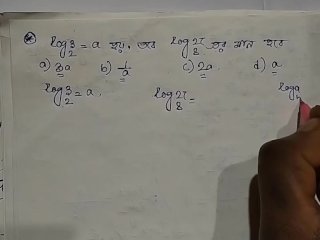 log₂3 = a হয়, তবে log₈27 এর মান হবে
a) 3a b) 1/a c) 2a d) a
log₂3 = a. log₈27 = log